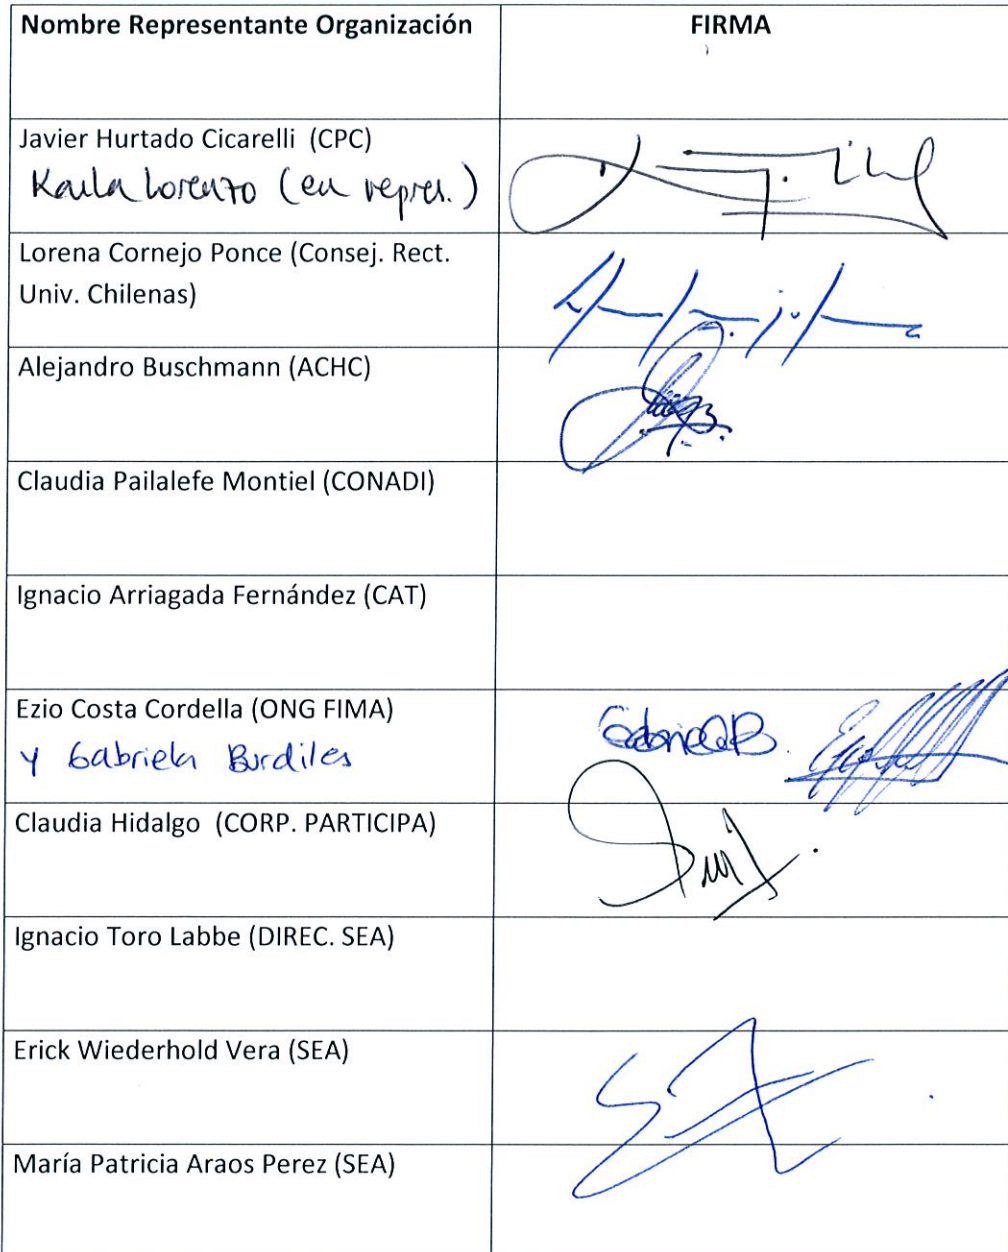 Nombre Representante Organización
FIRMA
Javier Hurtado Cicarelli (CPC)
Karla Lorenzo (en repres.)
Lorena Cornejo Ponce (Consej. Rect.
Univ. Chilenas)
Alejandro Buschmann (ACHC)
Claudia Pailalefe Montiel (CONADI)
Ignacio Arriagada Fernández (CAT)
Ezio Costa Cordella (ONG FIMA)
y Gabriela Burdiles
GabrielaB.
Claudia Hidalgo (CORP. PARTICIPA)
Ignacio Toro Labbe (DIREC. SEA)
Erick Wiederhold Vera (SEA)
María Patricia Araos Perez (SEA)